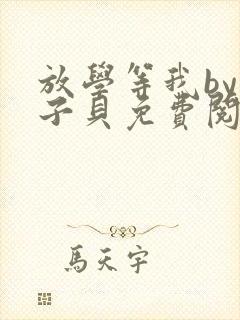 放學等我by
子貝免費閱
馬天宇